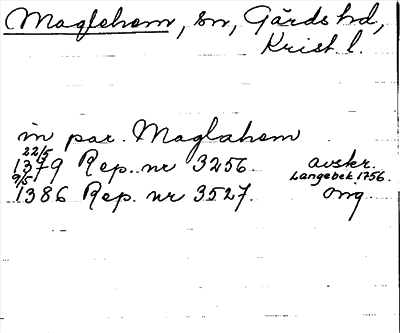 Maglehem, sn, Gärds hd,
Krist. l.
in par. Maglahem
22/5
1379 Rep. nr 3256. avskr.
Langebek 1756.
9/5
1386 Rep. nr 3527. orig.